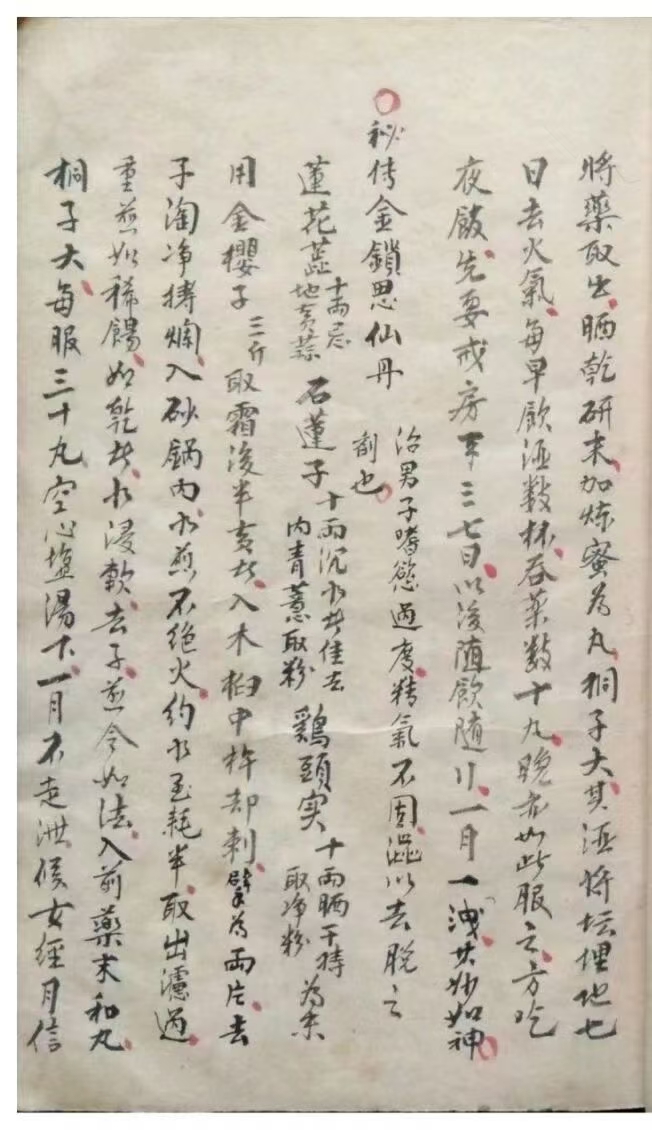 将藥取出晒乾研末加炼蜜為丸桐子大其酒将坛埋地七
日去火氣每早飲酒数杯吞药数十丸晚亦如此服之方吃
夜飯先要戒房事三七日以後随飲随行一月一洩其妙如神
秘传金鎖思仙丹 治男子嗜慾過度精氣不固澁以去脱之
劑也
蓮花蕋 十兩忌地黄蒜 石蓮子 十兩沉水者佳去内青薏取粉 鷄頭実 十兩晒干持取净粉 為末
用金櫻子 三斤 取霜後半黄者入木臼中杵却刺擘為兩片去
子淘净持爛入砂鍋内水煎不绝火约水至耗半取出濾過
重煎如稀餳如乾者水浸軟去子煎令如法入前藥末和丸
桐子大每服三十丸空心盐湯下一月不走洩候女經月信